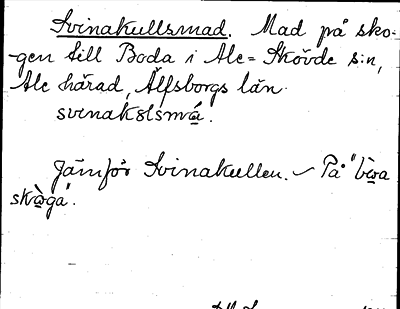 Svinakullsmad. Mad på sko-
gen till Boda i Ale-Skövde s:n,
Ale härad, Älfsborgs län.
svinakɷlsmá.
Jämför Svinakullen. – På "bè̱ra
skò̱ga".